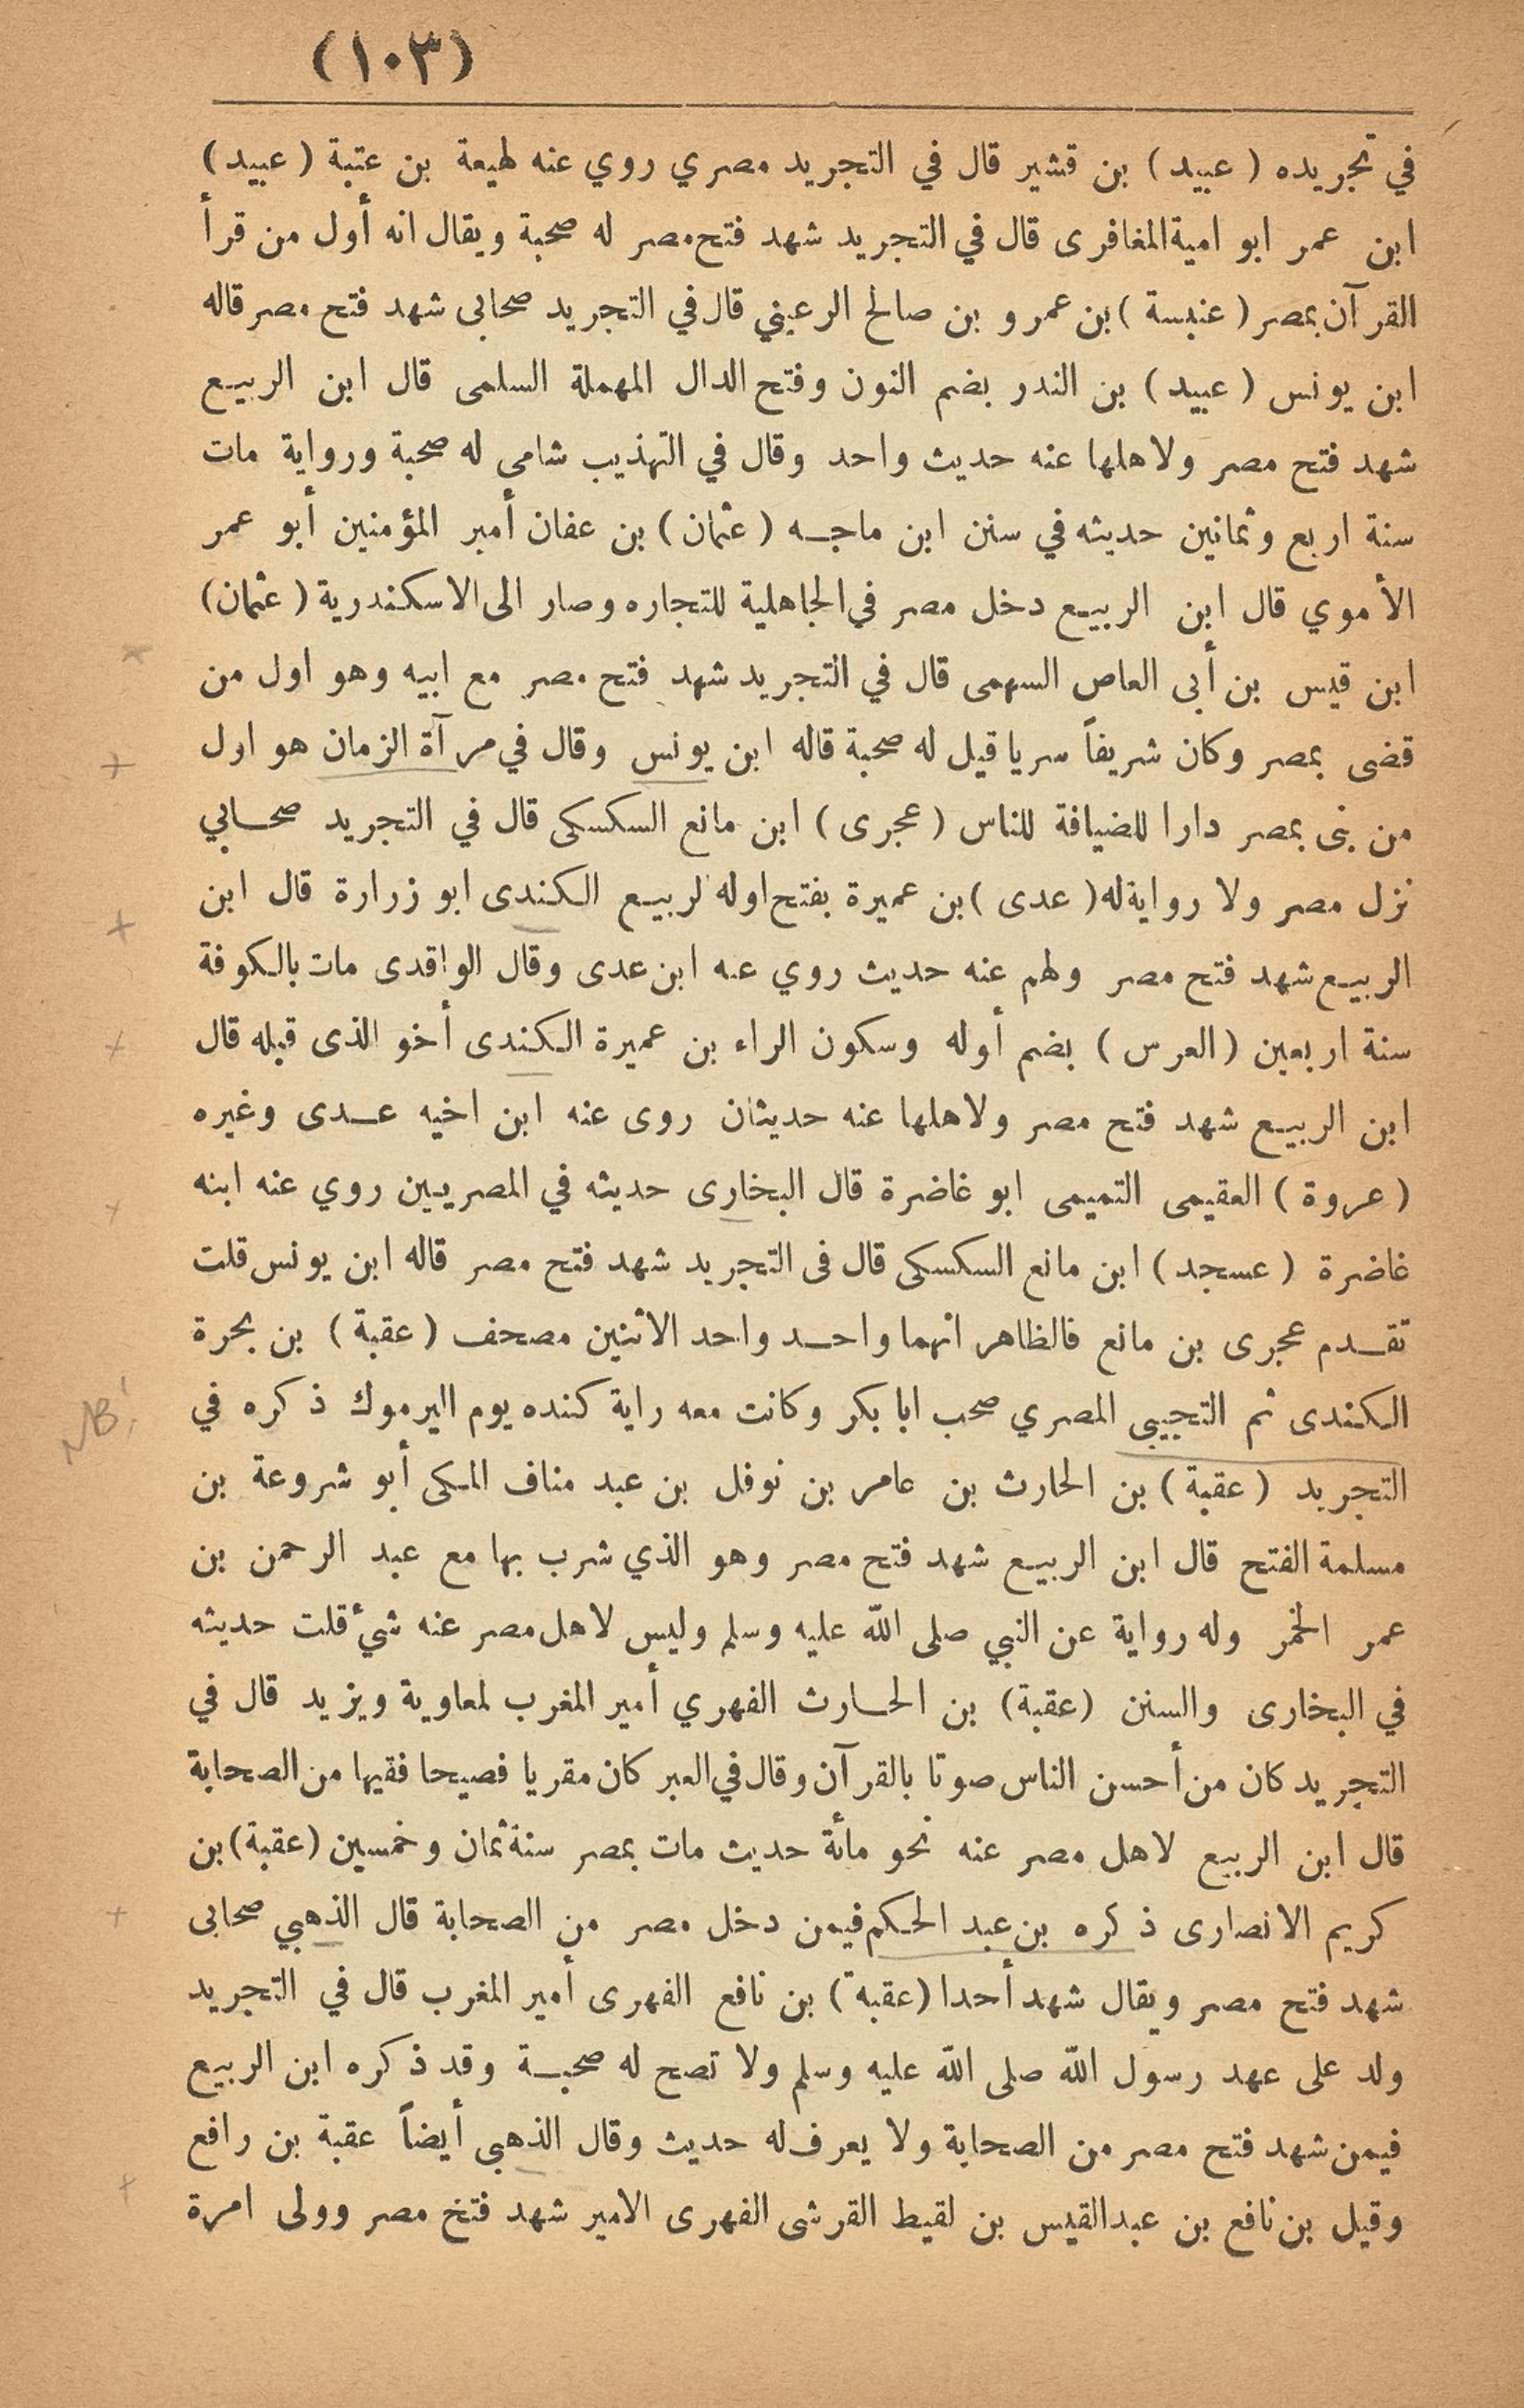 (١٠٣)
في تجريده ( عبيد ) بن قشير قال في التجريد مصري روي عنه لهيعة بن عتبة ( عبيد )
ابن عمر ابو امية المغافرى قال في التجريد شهد فتح مصر له صحبة ويقال انه أول من قرأ
القرآن بمصر ( عنبسة ) بن عمرو بن صالح الرعيني قال في التجريد صحابى شهد فتح مصر قاله
ابن يونس ( عبيد ) بن الندر بضم النون وفتح الدال المهملة السلمى قال ابن الربيع
شهد فتح مصر ولاهلها عنه حديث واحد وقال في التهذيب شامى له صحبة ورواية مات
سنة اربع وثمانين حديثه في سنن ابن ماجه ( عثمان ) بن عفان أمير المؤمنين أبو عمر
الأموي قال ابن الربيع دخل مصر في الجاهلية للتجاره وصار الى الاسكندرية ( عثمان )
ابن قيس بن أبى العاص السهمى قال في التجريد شهد فتح مصر مع ابيه وهو اول من
قضى بمصر وكان شريفاً سريا قيل له صحبة قاله ابن يونس وقال في مرآة الزمان هو اول
من بنى بمصر دارا للضيافة للناس ( عجرى ) ابن مانع السكسكى قال في التجريد صحابي
نزل مصر ولا رواية له ( عدى ) بن عميرة بفتح اوله لربيع الكندى ابو زرارة قال ابن
الربيع شهد فتح مصر ولهم عنه حديث روي عه ابن عدى وقال الواقدى مات بالكوفة
سنة اربعين ( العرس ) بضم أوله وسكون الراء بن عميرة الكندى أخو الذى قبله قال
ابن الربيع شهد فتح مصر ولاهلها عنه حديثان روى عنه ابن اخيه عدى وغيره
( عروة ) العقيمى التميمى ابو غاضرة قال البخارى حديثه في المصريين روي عنه ابنه
غاضرة ( عسجد ) ابن مانع السكسكى قال فى التجريد شهد فتح مصر قاله ابن يونس قلت
تقدم عجرى بن مانع فالظاهر انهما واحد واحد الاثنين مصحف ( عقبة ) بن بحرة
الكندى ثم التجيبى المصري صحب ابا بكر وكانت معه راية كنده يوم اليرموك ذكره في
NB!
التجريد ( عقبة ) بن الحارث بن عامر بن نوفل بن عبد مناف المكى أبو شروعة بن
مسلمة الفتح قال ابن الربيع شهد فتح مصر وهو الذي شرب بها مع عبد الرحمن بن
عمر الخمر وله رواية عن النبي صلى الله عليه وسلم وليس لاهل مصر عنه شئ قلت حديثه
في البخارى والسنن ( عقبة ) بن الحارث الفهري أمير المغرب لمعاوية ويزيد قال في
التجريد كان من أحسن الناس صوتا بالقرآن وقال في العبر كان مقريا فصيحا فقيها من الصحابة
قال ابن الربيع لاهل مصر عنه نحو مأة حديث مات بمصر سنة ثمان وخمسين ( عقبة ) بن
كريم الانصارى ذكره بن عبد الحكم فيمن دخل مصر من الصحابة قال الذهبي صحابى
شهد فتح مصر ويقال شهد أحدا ( عقبة ) بن نافع الفهرى أمير المغرب قال في التجريد
ولد على عهد رسول الله صلى الله عليه وسلم ولا تصح له صحبة وقد ذكره ابن الربيع
فيمن شهد فتح مصر من الصحابة ولا يعرف له حديث وقال الذهبى أيضاً عقبة بن رافع
وقيل بن نافع بن عبد القيس بن لقيط القرشى الفهرى الامير شهد فتخ مصر وولى امرة